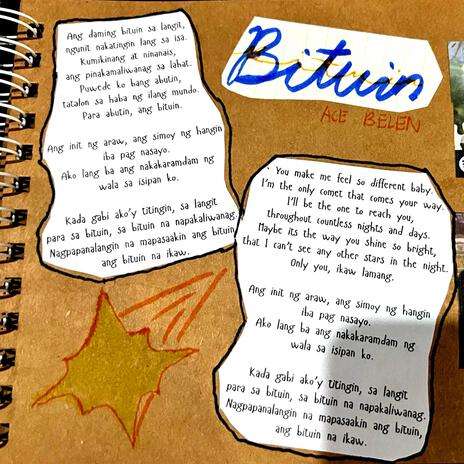 Bituin
ACE BELEN
Ang daming bituin sa langit,
ngunit nakatingin lang sa isa.
Kumikinang at ninanais,
ang pinakamaliwanag sa lahat.
Puwede ko bang abutin,
tatalon sa haba ng ilang mundo.
Para abutin, ang bituin.
Ang init ng araw, ang simoy ng hangin
iba pag nasayo.
Ako lang ba ang nakakaramdam ng
wala sa isipan ko.
Kada gabi ako'y titingin, sa langit
para sa bituin, sa bituin na napakaliwanag.
Nagpapanalangin na mapasaakin ang bituin
ang bituin na ikaw.
You make me feel so different baby.
I'm the only comet that comes your way.
I'll be the one to reach you,
throughout countless nights and days.
Maybe its the way you shine so bright,
that I can't see any other stars in the night.
Only you, ikaw lamang.
Ang init ng araw, ang simoy ng hangin
iba pag nasayo.
Ako lang ba ang nakakaramdam ng
wala sa isipan ko.
Kada gabi ako'y titingin, sa langit
para sa bituin, sa bituin na napakaliwanag.
Nagpapanalangin na mapasaakin ang bituin,
ang bituin na ikaw.